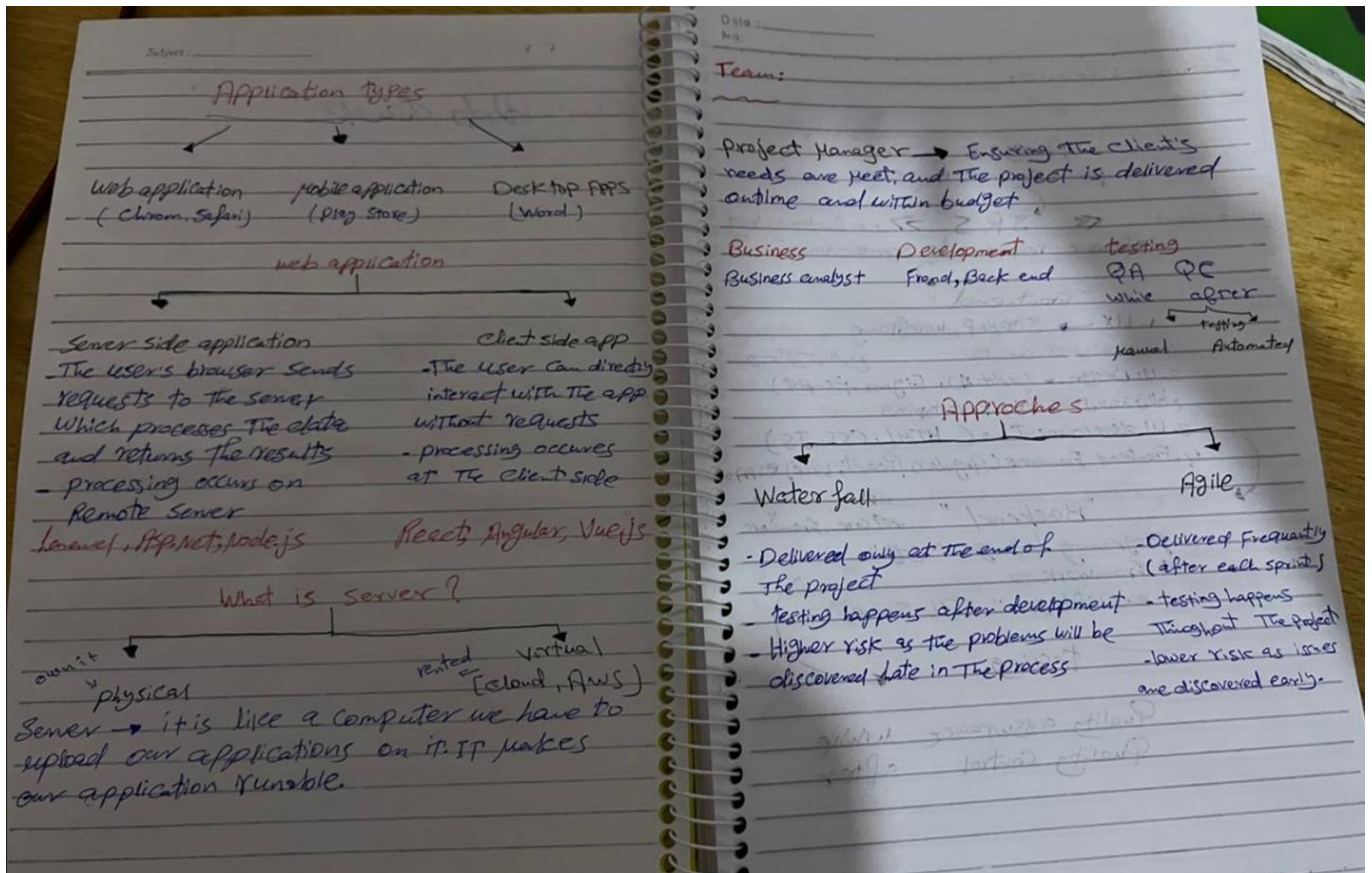 Subject:
Application types
Web application Mobile application Desktop APPS
(Chrom, Safari) (Play Store) (Word)
web application
Server side application
The user's browser sends
requests to the server
which processes the data
and returns the results
- processing occurs on
Remote server
Laravel, Asp.Net, Node.js
Cliet side app
- The user can directly
interact with the app
without requests
- processing occures
at the client side
React, Angular, Vue.js
What is server?
own it
physical
rented
virtual
[cloud, AWS]
Server → it is like a computer we have to
upload our applications on it. IT makes
our application runable.
Date:
No:
Team:
project Manager → Ensuring the client's
needs are meet, and the project is delivered
ontime and within budget
Business Development testing
Business analyst Back end QA QC
while after
testing
Manual Automated
Approches
Water fall
- Delivered only at the end of
the project
- testing happens after development
- Higher risk as the problems will be
discovered late in the process
Agile
- Delivered Frequantly
(after each sprint)
- testing happens
the project
- lower risk as issues
are discovered early.